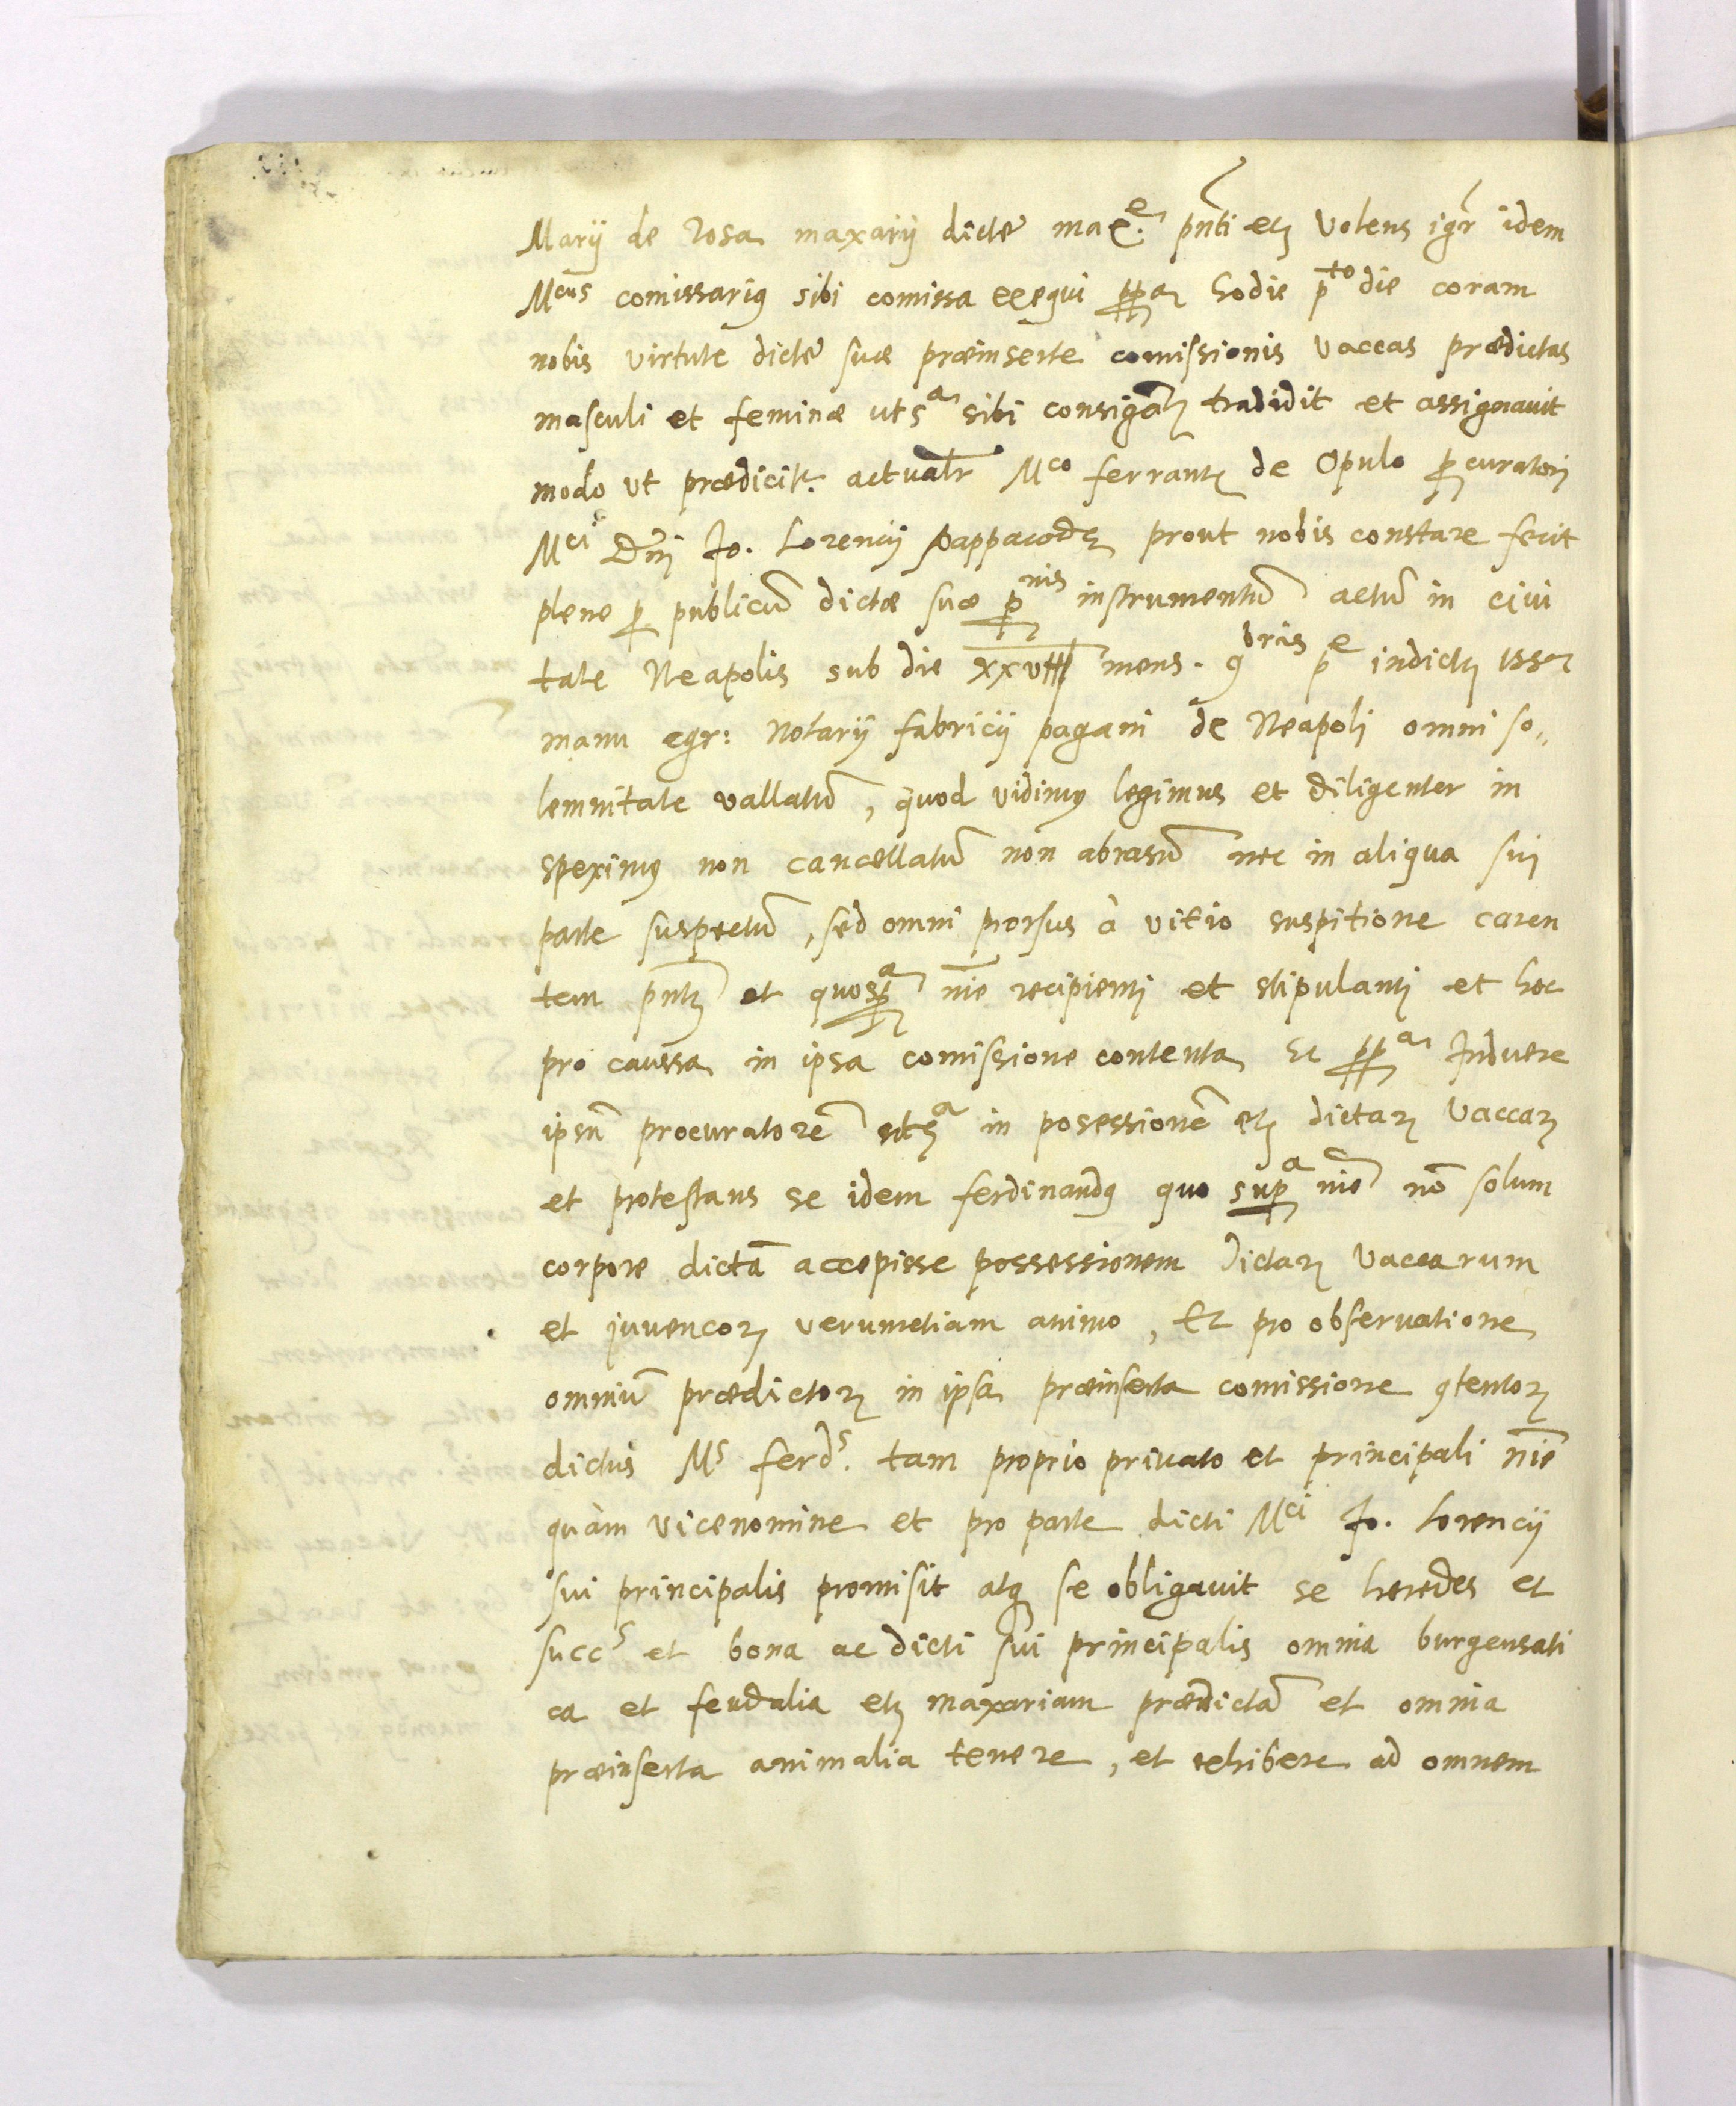 Marij de Rosa maxarij dictę max.e pñti etꝫ volens igr̃ idem
Mcus comissariꝯ sibi comissa exequi ꝑꝑa hodie pto die coram
nobis virtute dictę suæ præinserte comissionis vaccas prædictas
masculi et feminæ utsa sibi consigatꝫ tradidit et assignauit
modo ut prædicitr. actualr̃ Mco ferrantꝫ de Opulo ꝓcuratori
Mci Dñi Jo. Lorencij pappacodꝫ prout nobis constare fecit
plene ꝑ publicũ dictæ suæ ꝓnis instrumentũ actũ in ciui
tate Neapolis sub die mens. 9bris pe indictꝫ
manu egr: Notarij fabricij pagani de Neapoli omni so„
lemnitate vallatũ, quod vidimꝯ legimus et diligenter in
speximꝯ non cancellatũ non abrasũ nec in aliqua sui
parte suspectũ, sed omni prorsus à vitio suspitione caren
tem pñtꝫ et quo sꝑa nĩe recipientj et stipulantj et hoc
pro caussa in ipsa comissione contenta Et ꝑꝑa Induere
ipsũ procuratorẽ utsa in posessionẽ etꝫ dictarꝫ vaccarꝫ
et protestans se idem ferdinandꝯ quo supa nĩe nõ solum
corpore dictã accepisse possessionem dictarꝫ vaccarum
et juuencorꝫ verumetiam animo, Et pro obseruatione
omniũ prædictorꝫ in ipsa præinserta comissione ꝯtentorꝫ
dictus Ms ferds. tam proprio priuato et principali nĩe
quàm vicenomine et pro parte dicti Mci Jo. Lorencij
sui principalis promisit atqꝫ se obligauit se heredes et
succs et bona ac dicti sui principalis omnia burgensati
ca et feudalia etꝫ maxariam prædictã et omnia
præinserta animalia tenere, et exhibere ad omnem